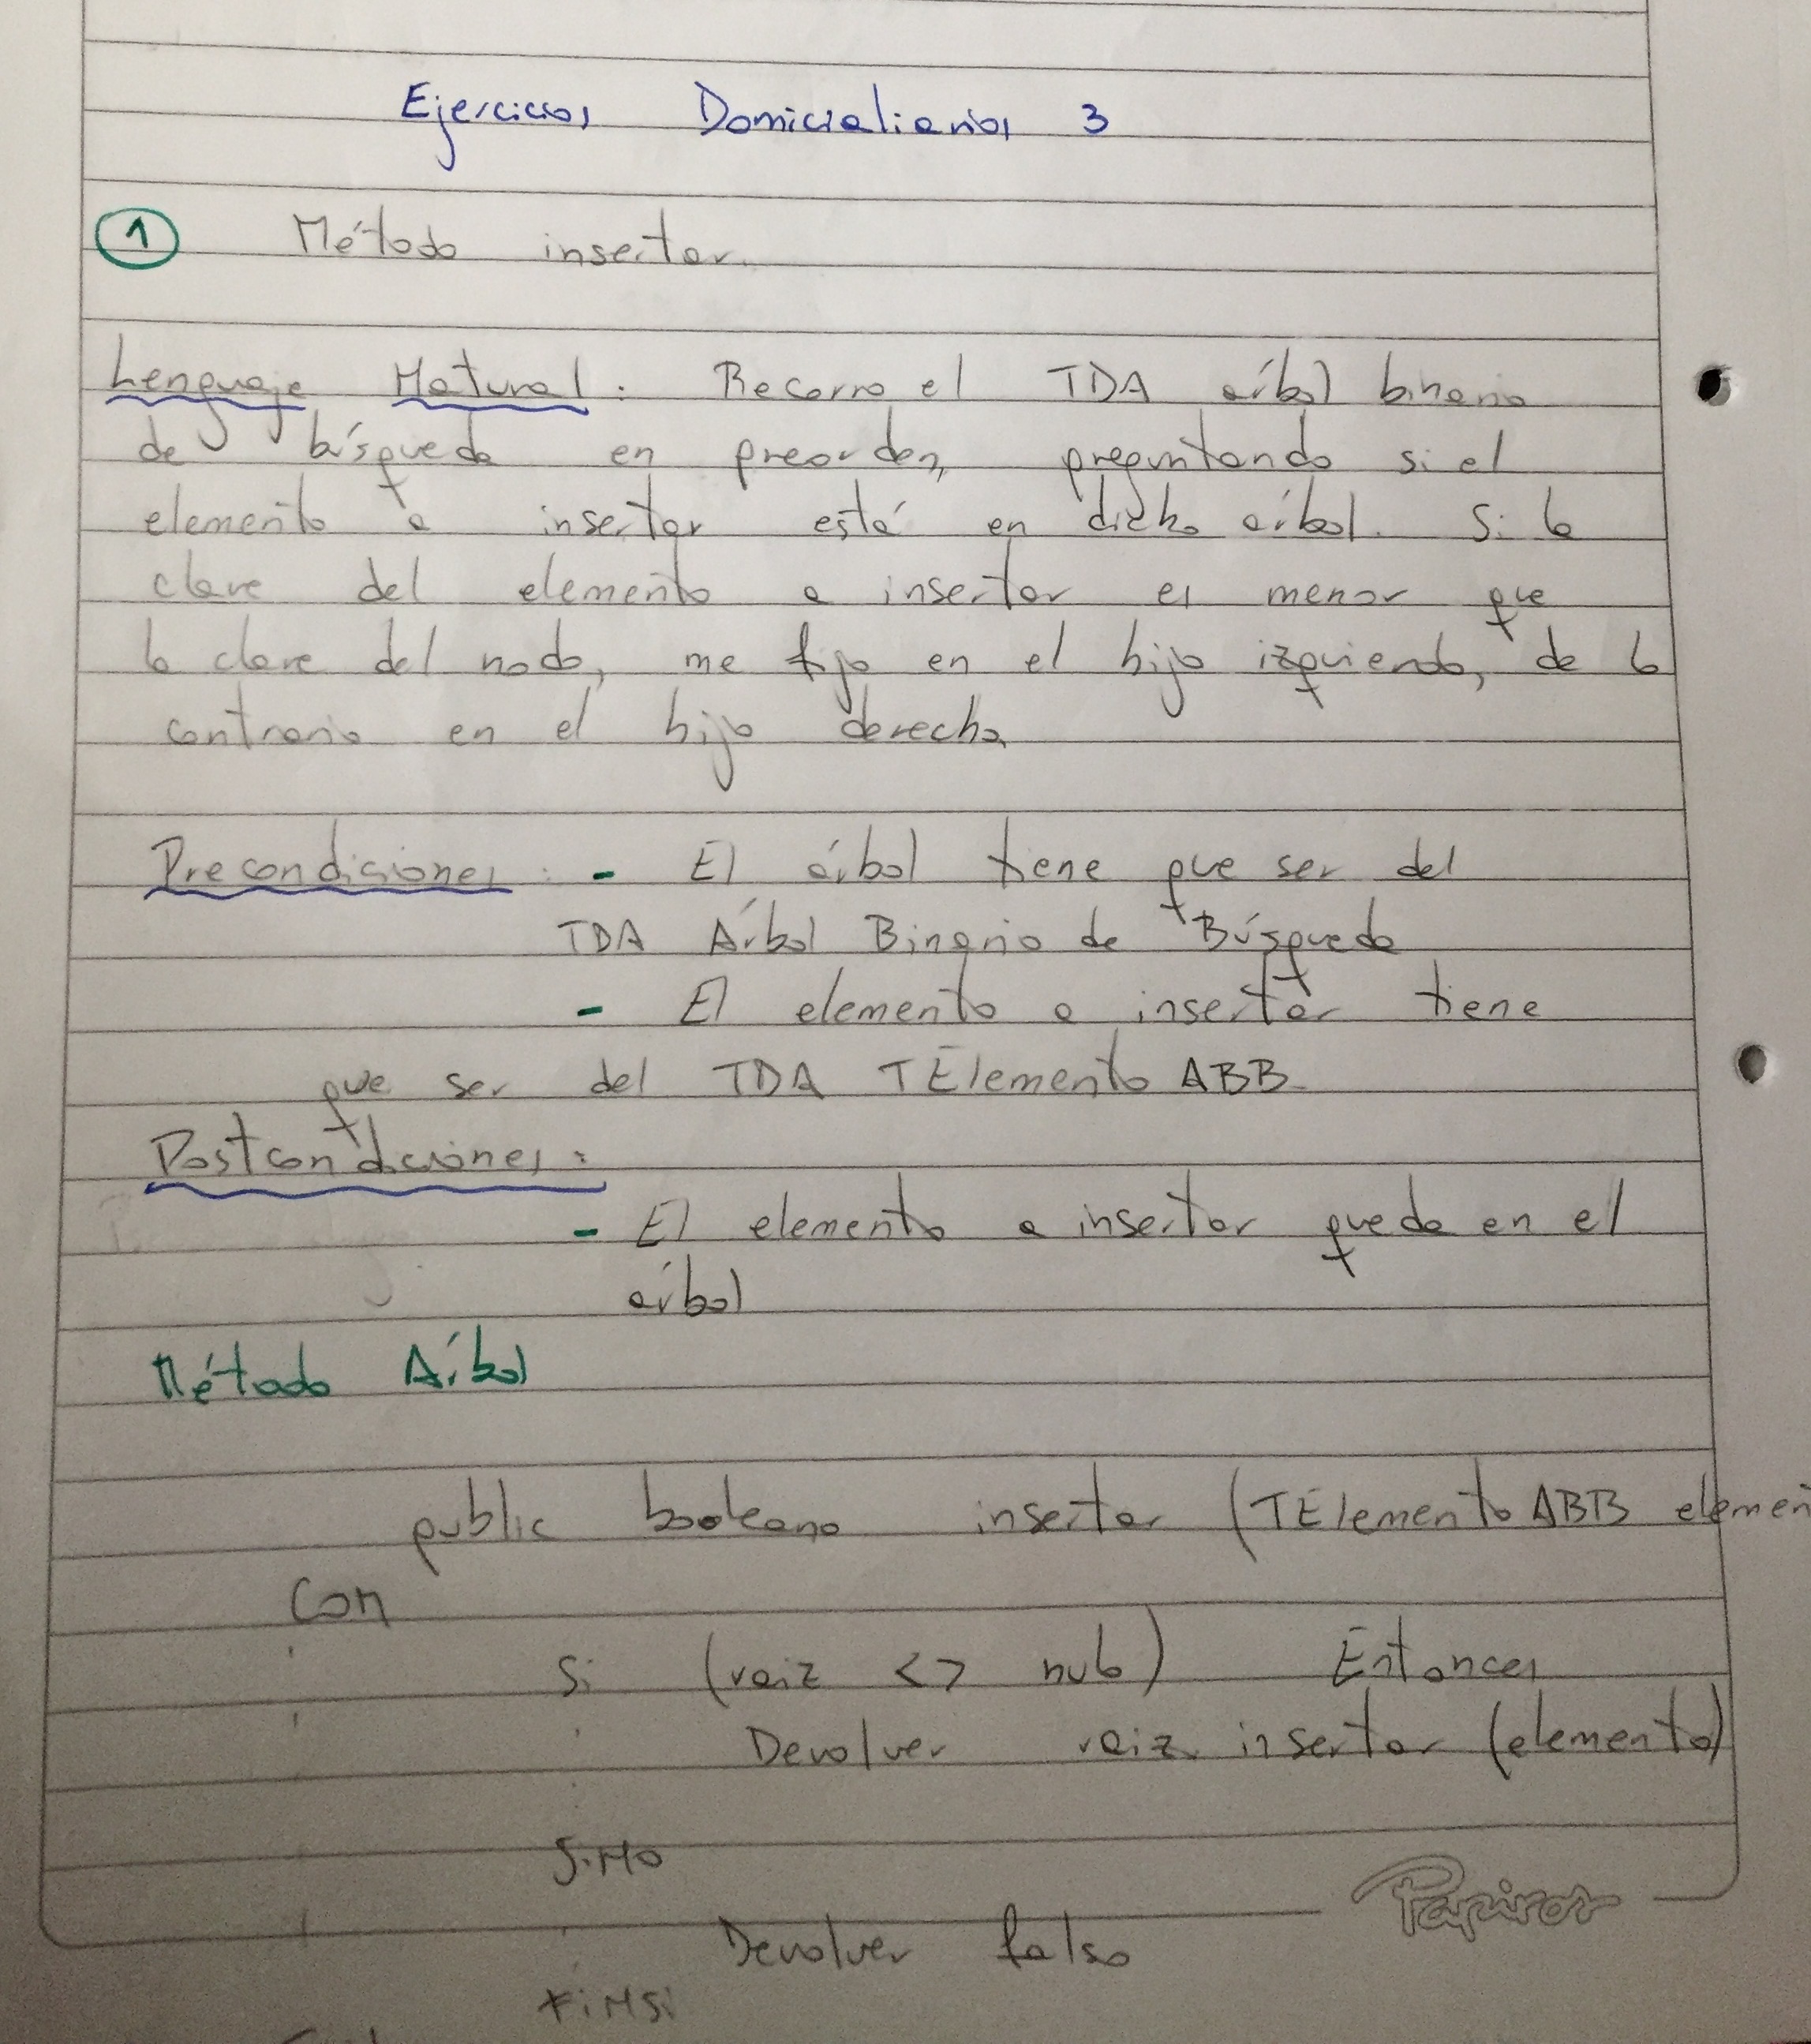 Ejercicios Domicialiarios 3
1 Método insertar.
Lenguaje Natural: Recorro el TDA árbol binario
de búsqueda en preorden, preguntando si el
elemento a insertar está en dicho árbol. Si la
clave del elemento a insertar es menor que
la clave del nodo, me fijo en el hijo izquierdo, de lo
contrario en el hijo derecho.
Precondiciones: - El árbol tiene que ser del
TDA Árbol Binario de Búsqueda
- El elemento a insertar tiene
que ser del TDA TElementoABB
Postcondiciones:
- El elemento a insertar queda en el
árbol
Método Árbol
public booleano insertar (TElementoABB elemen
Com
Si (raiz <> nulo) Entonces
Devolver raiz.insertar (elemento)
SiNo
Papiros
Devolver falso
FinSi